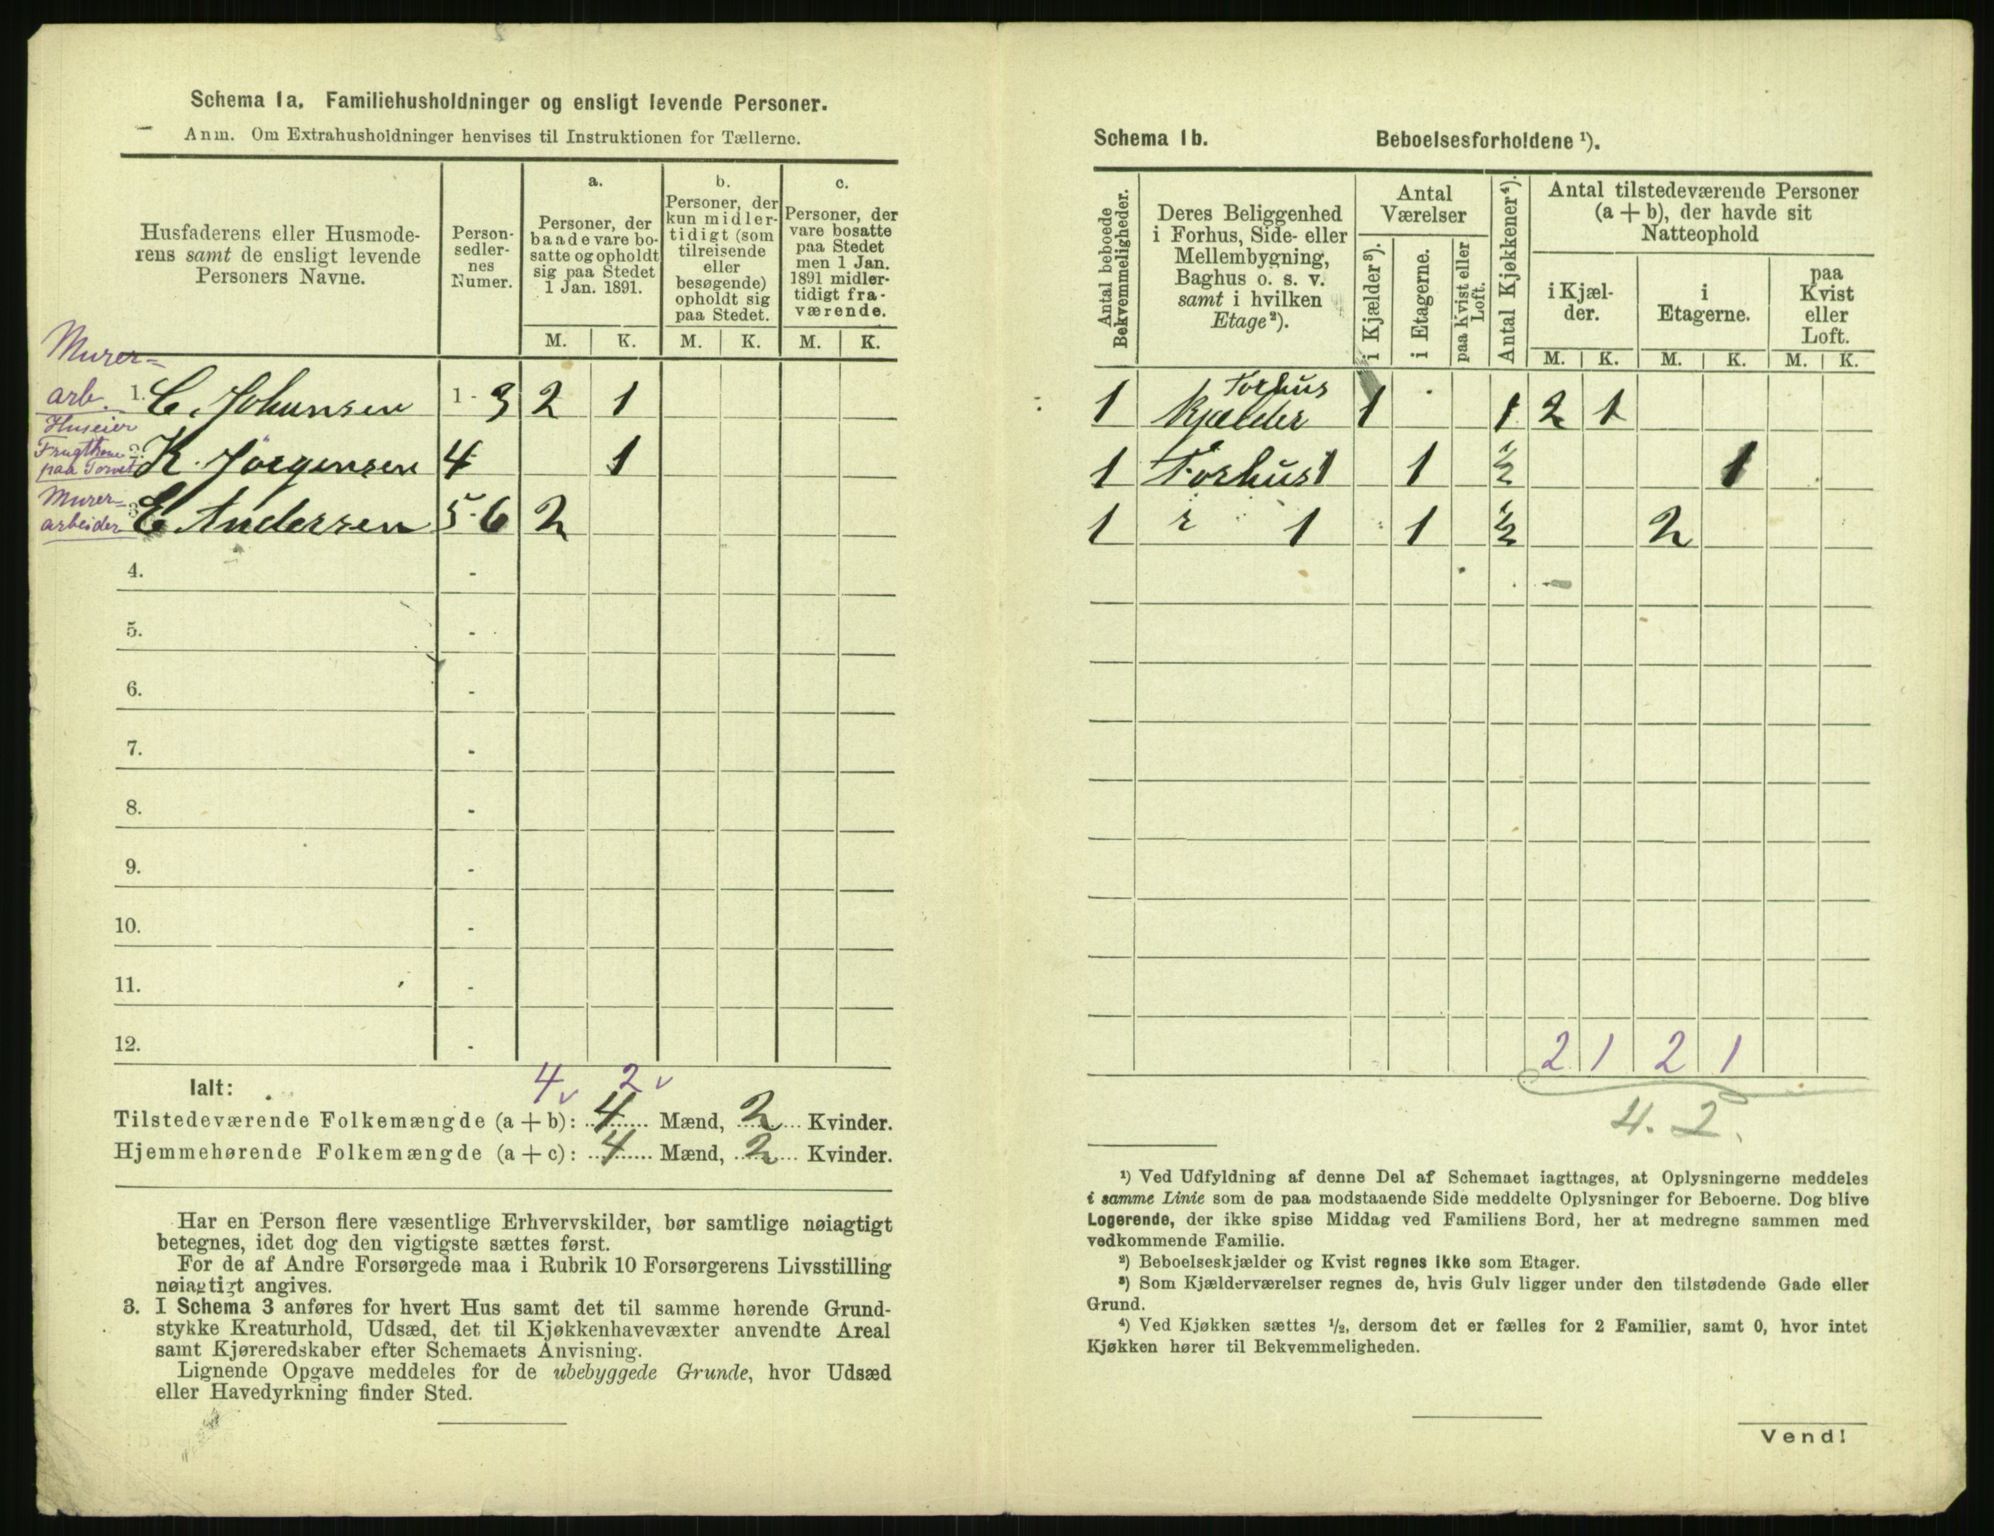 Schema 1a. Familiehusholdninger og ensligt levende Personer.
Anm. Om Extrahusholdninger henvises til Instruktionen for Tællerne.
Husfaderens eller Husmode-
rens samt de ensligt levende
Personers Navne.
Person-
sedler-
nes
Numer.
a.
Personer, der
baade vare bo-
satte og opholdt
sig paa Stedet
1 Jan. 1891.
b.
Personer, der
kun midler-
tidigt (som
tilreisende
eller
besøgende)
opholdt sig
paa Stedet.
c.
Personer, der
vare bosatte
paa Stedet
men 1 Jan.
1891 midler-
tidigt fra-
værende.
M. K. M. K. M. K.
Murer-
arb. 1. C. Johansen 1 - 3 2 1
Huseier
Frugtkone
paa Torvet 2. K. Jörgensen 4 1
Murer-
arbeider 3. E. Andersen 5 - 6 2
4. -
5. -
6. -
7. -
8. -
9. -
10. -
11. -
12. -
4 v 2 v
Ialt:
Tilstedeværende Folkemængde (a + b): 4 Mænd, 2 Kvinder.
Hjemmehørende Folkemængde (a + c): 4 Mænd, 2 Kvinder.
Har en Person flere væsentlige Erhvervskilder, bør samtlige nøiagtigt
betegnes, idet dog den vigtigste sættes først.
For de af Andre Forsørgede maa i Rubrik 10 Forsørgerens Livsstilling
nøiagtigt angives.
3. I Schema 3 anføres for hvert Hus samt det til samme hørende Grund-
stykke Kreaturhold, Udsæd, det til Kjøkkenhavevæxter anvendte Areal
samt Kjøreredskaber efter Schemaets Anvisning.
Lignende Opgave meddeles for de ubebyggede Grunde, hvor Udsæd
eller Havedyrkning finder Sted.
Schema 1b. Beboelsesforholdene ¹).
Antal beboede
Bekvemmeligheder.
Deres Beliggenhed
i Forhus, Side- eller
Mellembygning,
Baghus o. s. v.
samt i hvilken
Etage²).
Antal
Værelser
i Kjælder³).
i Etagerne.
paa Kvist eller
Loft.
Antal Kjøkkener⁴).
Antal tilstedeværende Personer
(a + b), der havde sit
Natteophold
i Kjæl-
der.
i
Etagerne.
paa
Kvist
eller
Loft.
M. K. M. K. M. K.
Forhus
1 Kjælder 1 1 2 1
1 Forhus 1 1 ½ 1
1 1 1 ½ 2
2 1 2 1
4. 2.
¹) Ved Udfyldning af denne Del af Schemaet iagttages, at Oplysningerne meddeles
i samme Linie som de paa modstaaende Side meddelte Oplysninger for Beboerne. Dog blive
Logerende, der ikke spise Middag ved Familiens Bord, her at medregne sammen med
vedkommende Familie.
²) Beboelseskjælder og Kvist regnes ikke som Etager.
³) Som Kjælderværelser regnes de, hvis Gulv ligger under den tilstødende Gade eller
Grund.
⁴) Ved Kjøkken sættes ½, dersom det er fælles for 2 Familier, samt 0, hvor intet
Kjøkken hører til Bekvemmeligheden.
Vend!